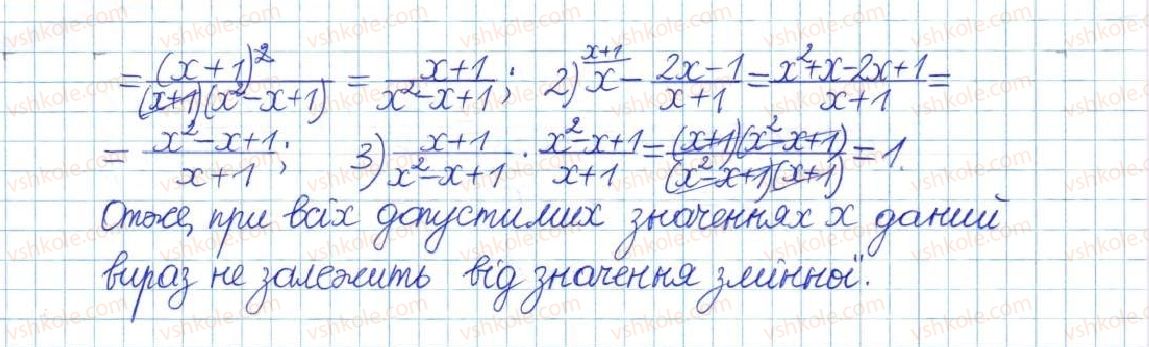 = (x+1)² / (x+1)(x²-x+1) = x+1 / x²-x+1; 2) x^{x+1} - 2x-1 / x+1 = x²+x-2x+1 / x+1 =
= x²-x+1 / x+1; 3) x+1 / x²-x+1 · x²-x+1 / x+1 = (x+1)(x²-x+1) / (x²-x+1)(x+1) = 1.
Отже, при всіх допустимих значеннях x даний
вираз не залежить від значення змінної.